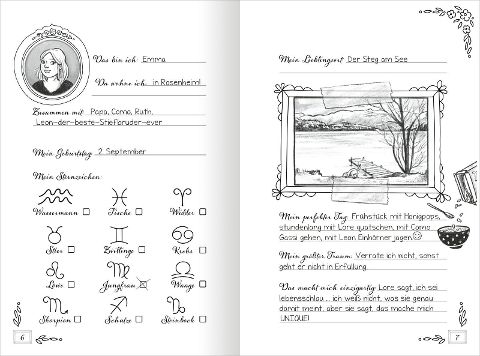 Das bin ich: Emma
Da wohne ich: in Rosenheim!
Zusammen mit: Papa, Como, Ruth,
Leon-der-beste-Stiefbruder-ever
Mein Geburtstag: 2 September
Mein Sternzeichen:
Wassermann Fische Widder
Stier Zwillinge Krebs
Löwe Jungfrau Waage
Skorpion Schütze Steinbock
6
Mein Lieblingsort: Der Steg am See
Mein perfekter Tag: Frühstück mit Honigpops,
stundenlang mit Lore quatschen, mit Como
Gassi gehen, mit Leon Einhörner jagen
Mein größter Traum: Verrate ich nicht, sonst
geht er nicht in Erfüllung
Das macht mich einzigartig: Lore sagt, ich sei
lebensschlau ... ich weiß nicht, was sie genau
damit meint, aber sie sagt, das mache mich
UNIQUE!
7